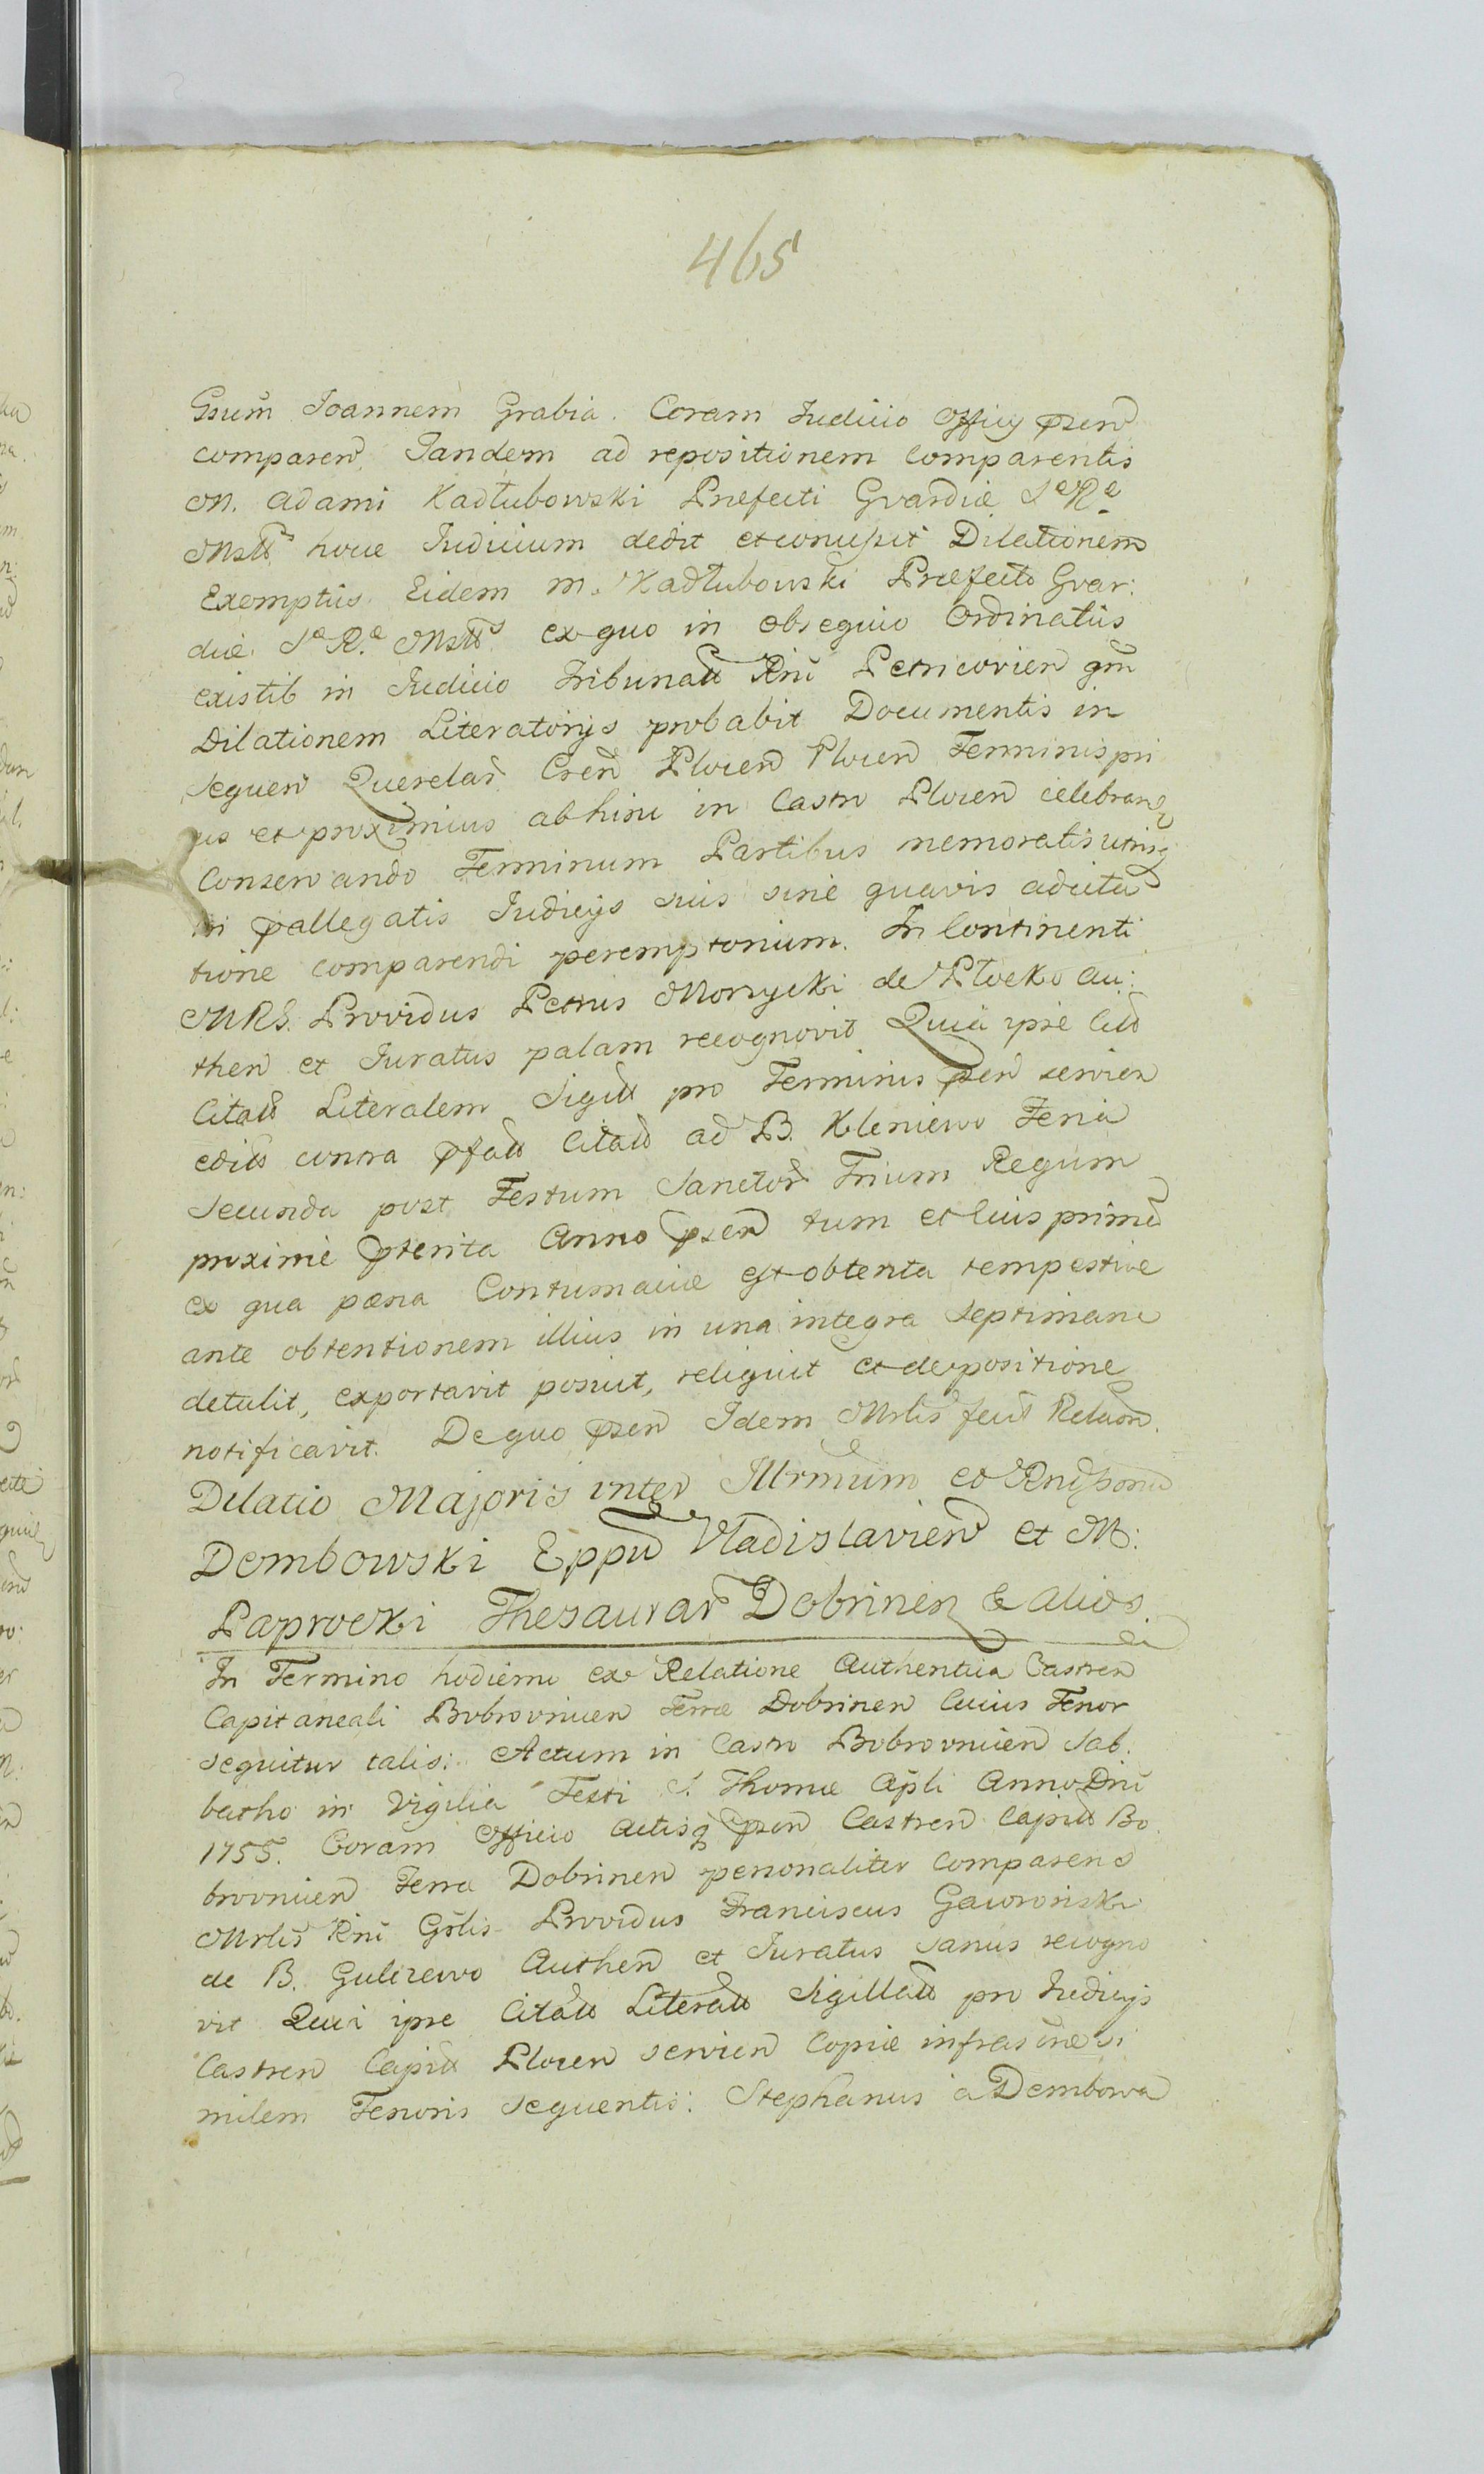 465
Gsum Joannem Grabia. Coram Judicio Officij psen
comparen. Tandem ad repositionem Comparentis
M. Adami Kadłubowski Præfecti Gvardiæ Sæ Ræ
Mstt hocce Judicium dedit et concessit Dilationem
Exemptus Eidem M. Kadłubowski Præfecto Gvar:
diæ Sæ Ræ Mstt ex quo in obsequio Ordinatus
existit in Judicio Tribunali Rni Petricovien qm
Dilationem Literatorijs probabit Documentis in
sequen Querelar Cren Plocen Plocen Terminis pri
us et proximius abhinc in Castro Plocen celebran
Conservando Terminum Partibus memoratis utrisq
in pallegatis Judicijs suis sine quavis adcita
tione comparendi peremptorium. In Continenti
MRS. Providus Petrus Morzycki de Płocko au:
then et Juratus palam recognovit Quia ipse
Citatt Literalem Sigill pro Terminis psen servien
edit contra pfatt Citatt ad B. Kleniewo Feria
Secunda post Festum Sanctor Trium Regum
proxime pterita Anno psen tum et huis primæ
ex qua pœna Contumaciæ est obtenta tempestive
ante obtentionem illius in una integra Septimana
detulit, exportavit posuit, reliquit et de positione
notificavit. De quo psen Idem Mrlis fecit Relaon.
Dilatio Majoris inter Illrmum et Rndssmum
Dembowski Eppum Vladislavien et M:
Paprocki Thesaurar Dobrinen & alios.
In Termino hodierno ex Relatione Authentica Castren
Capitaneali Bobrovnicen Terræ Dobrinen Cuius Tenor
sequitur talis: Actum in Castro Bobrovnicen Sab:
batho in Vigilia Festi S. Thomæ Apli Anno Dni
1755. Coram Officio Actisq psen Castren Capitt Bo
brovnicen Terræ Dobrinen personaliter Comparens
Mrlis Rni Gslis Providus Franciscus Gaworoński
de B. Gulczewo Authen et Juratus sanus recogno
vit Quia ipse Citatt Literatt Sigillatt pro Judicijs
Castren Capitt Plocen servien Copiæ infrascriptæ si
milem Tenoris sequentis: Stephanus a Dembowa